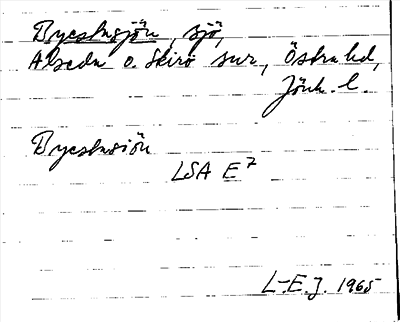 Byestusjön, sjö,
Alseda o. Skirö snr, Östra hd,
Jönk. l.
Byestusiön
LSA E7
L-E.J. 1965